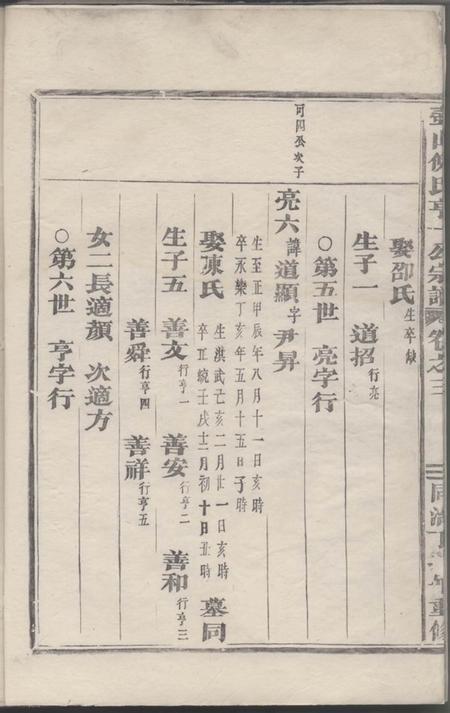 娶邵氏生卒缺
生子一 道招行亮
○第五世 亮字行
可四公次子
亮六諱道顯字尹昇
生至正甲辰年八月十一日亥時
卒永樂丁亥年五月十五日子時
娶陳氏 生洪武己亥二月廿一日亥時 卒正統壬戌十二月初十日丑時 墓同
生子五 善文行亨一 善安行亨二 善和行亨三
善舜行亨四 善祥行亨五
女二長適顏 次適方
○第六世 亨字行